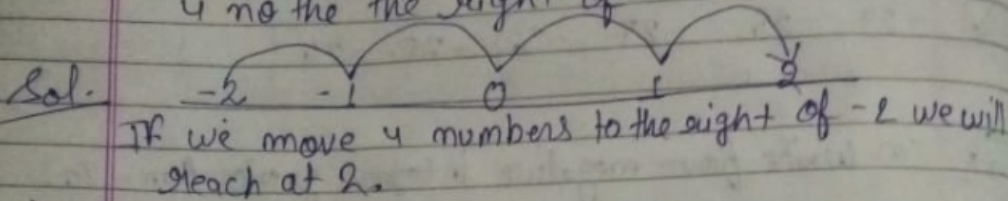 4 no the the right of
Sol. -2 -1 0 1 2
If we move 4 numbers to the right of -2 we will
reach at 2.